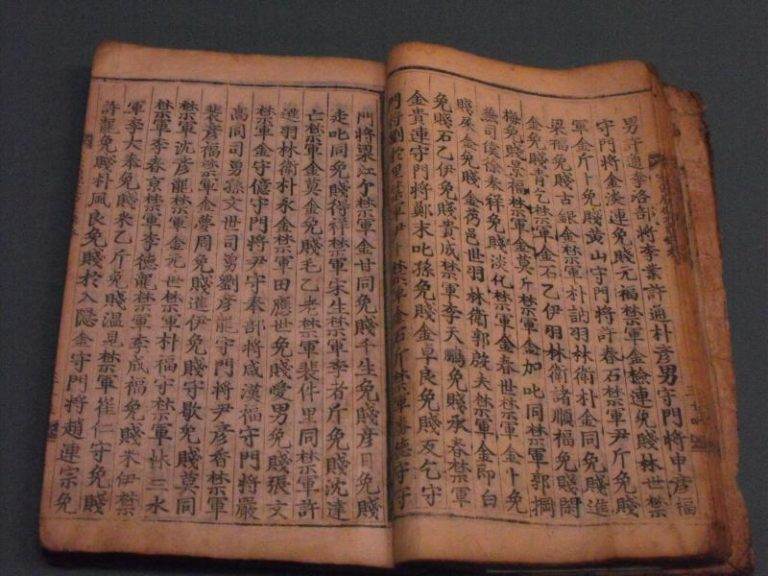 男許通李洛部將李業許通朴彥男守門將申彥福
守門將金漢連免賤元福禁軍金檢連免賤林世禁
軍金斤卜免賤黃山守門將許春石禁軍尹斤免賤
梁福免賤古錄金禁軍朴訥羽林衛朴金同免賤進
金免賤靑乙禁軍金石乙伊羽林衛諸順福免賤閑
梅免賤景福禁軍金莫斤禁軍金加叱同禁軍郭
司僕徐奉祥免賤淡化禁軍金春世禁軍金卜免
賤金免賤金芿邑世羽林衛郭啟夫禁軍金卽白
免賤石乙伊免賤貴成禁軍李天鵬免賤承春禁軍
金貴連守門將鄭末叱孫免賤金卓良免賤乞守
門將劉於里禁軍尹卜禁軍金石斤禁軍德守守
門將梁江禁軍金甘同免賤千生免賤彥日免賤
走叱同免賤得祥禁軍宋生禁軍李者斤免賤沈達
亡禁軍金莫金免賤毛乙老禁軍裴件里同禁軍許
進羽林衛朴永金禁軍田應世免賤愛男免賤張文
禁軍金守億守門將尹守奉部將咸漢福守門將嚴
高同司勇孫文世司勇劉彥龍守門將尹彥香禁軍
裴彥福禁軍金夢周免賤進伊免賤守歡免賤莫同
禁軍沈彥龍禁軍金元世禁軍朴福守禁軍林三水
禁軍李春京禁軍李德龍禁軍李成福免賤米伊禁
軍李大奉免賤米乙斤免賤溫見禁軍崔仁守免賤
許龍免賤朴風良免賤於入隱金守門將趙連宗免